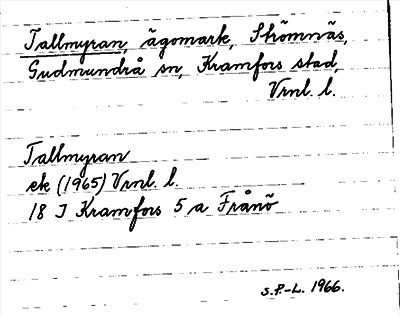 Tallmyran, ägomark, Strömnäs,
Gudmundrå sn, Kramfors stad,
Vrnl. l.
Tallmyran
ek (1965) Vrnl. l.
18 I Kramfors 5 a Frånö
S.P.-L. 1966.